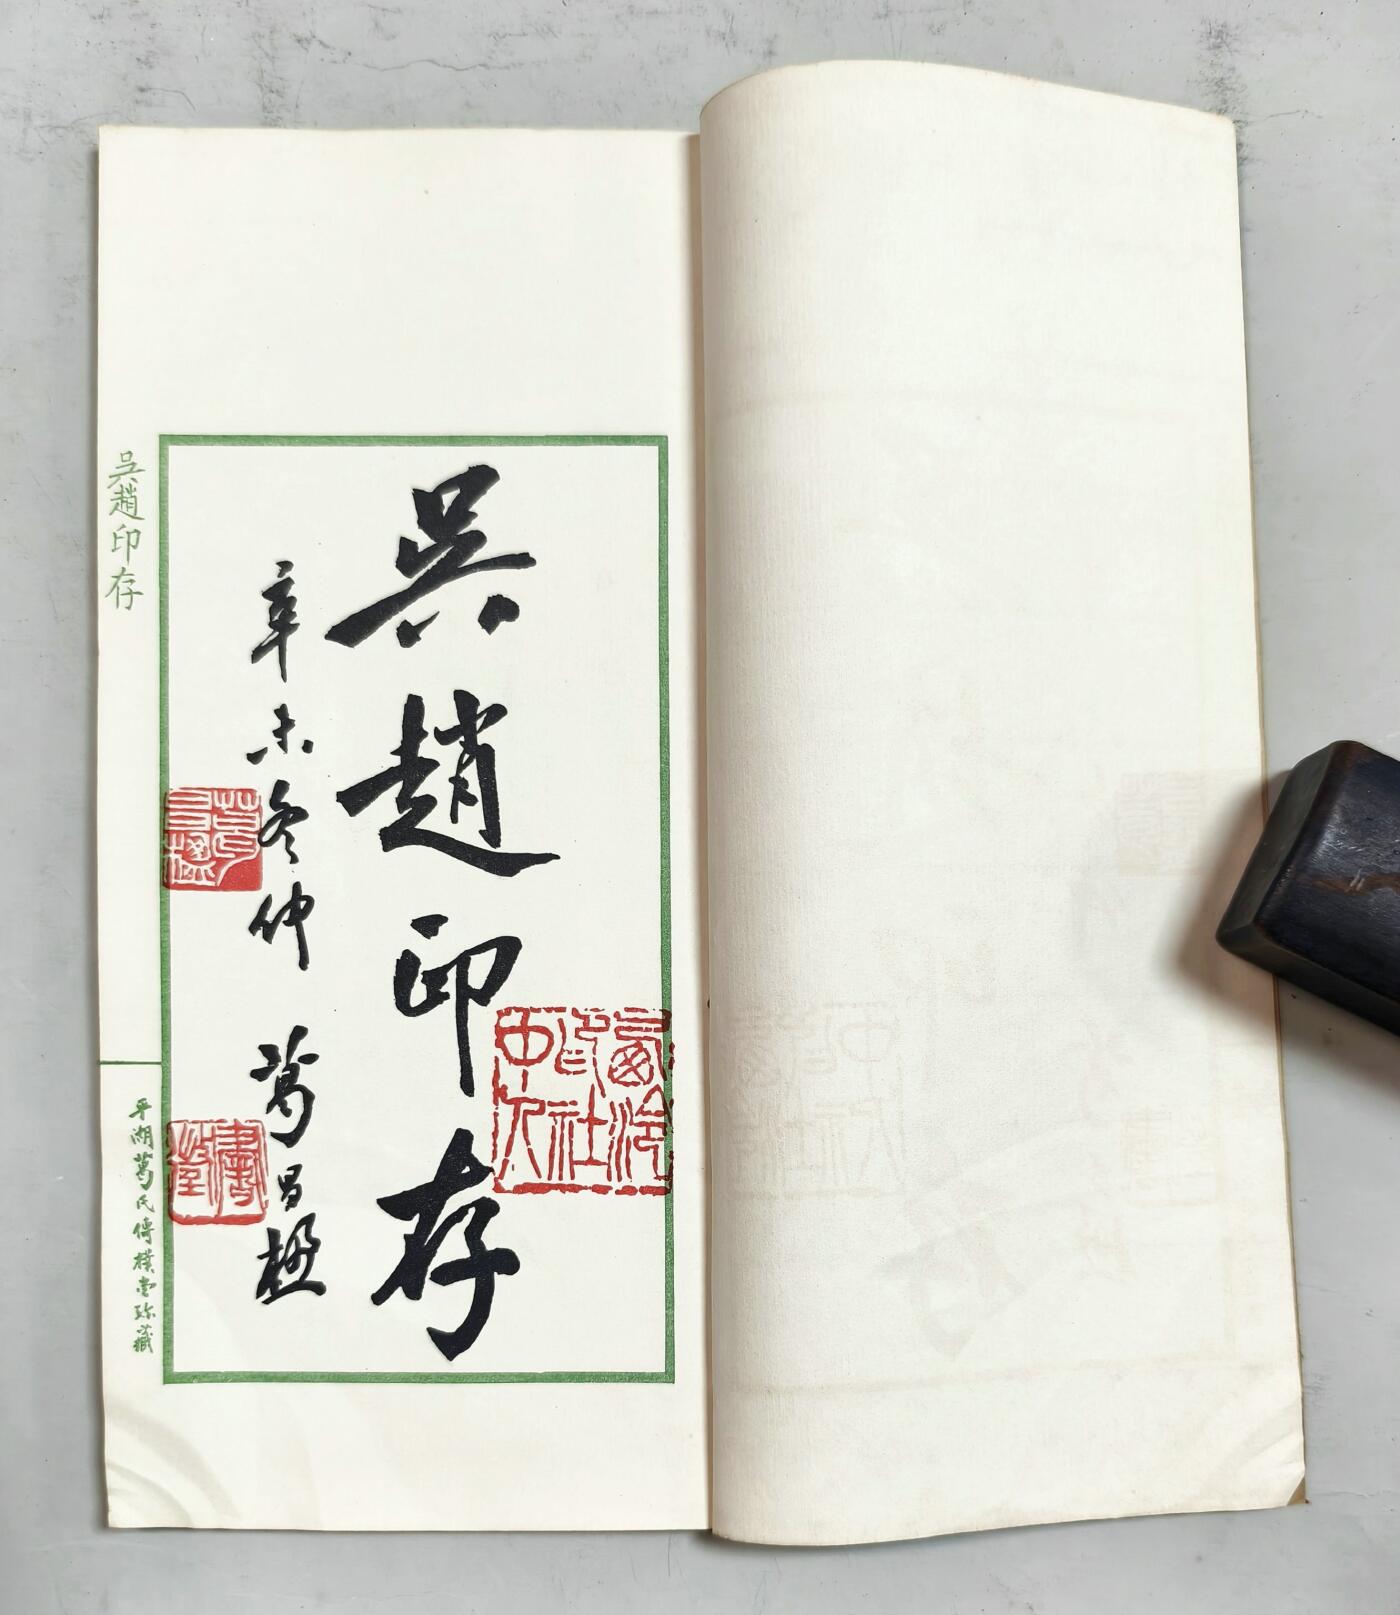 吳趙印存
辛未冬仲 葛昌楹
西泠印社中人
葛昌楹
吳趙印存
平湖葛氏傳樸堂珍藏